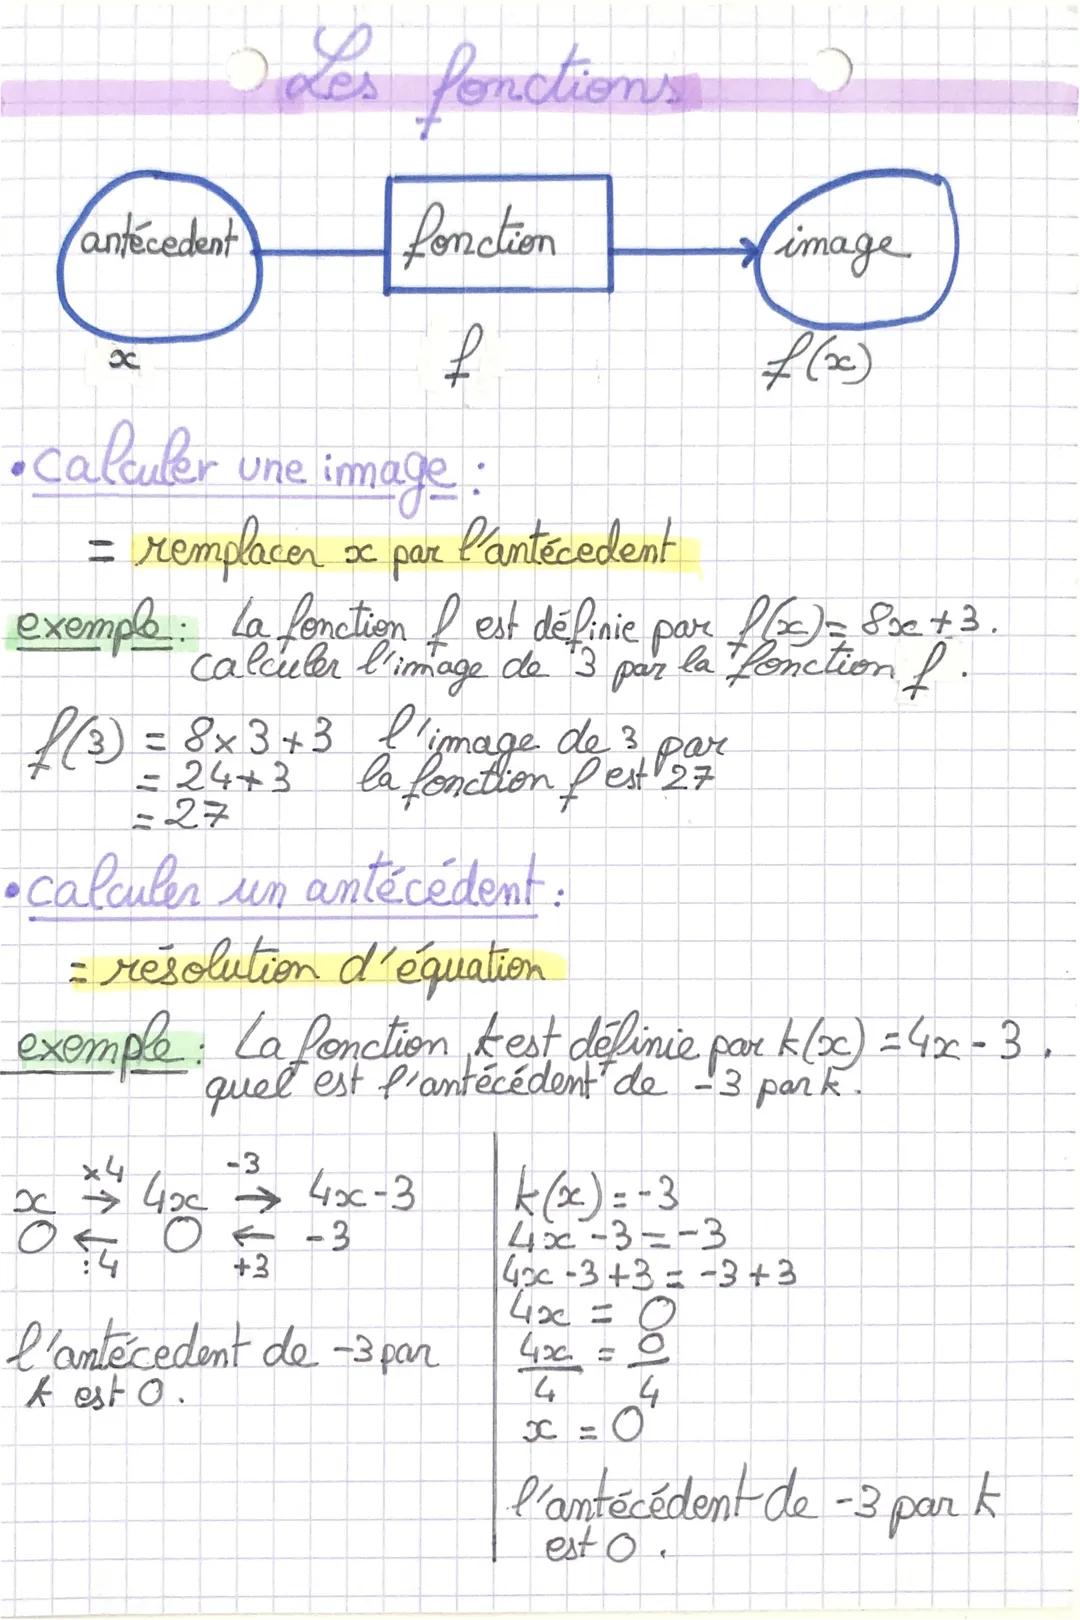 Les fonctions
antécedent fonction image
x f f(x)
• Calculer une image :
= remplacer x par l'antécedent
exemple : La fonction f est définie par f(x) = 8x + 3.
calculer l'image de 3 par la fonction f.
f(3) = 8 x 3 + 3 l'image de 3 par
= 24 + 3 la fonction f est 27
= 27
• calculer un antécédent :
= résolution d'équation
exemple : La fonction k est définie par k(x) = 4x - 3.
quel est l'antécédent de -3 par k.
x4 -3
x → 4x → 4x-3
0 ← 0 ← -3
:4 +3
l'antécedent de -3 par
k est 0.
k(x) = -3
4x - 3 = -3
4x - 3 + 3 = -3 + 3
4x = 0
4x = 0
4 4
x = 0
l'antécédent de -3 par k
est 0.